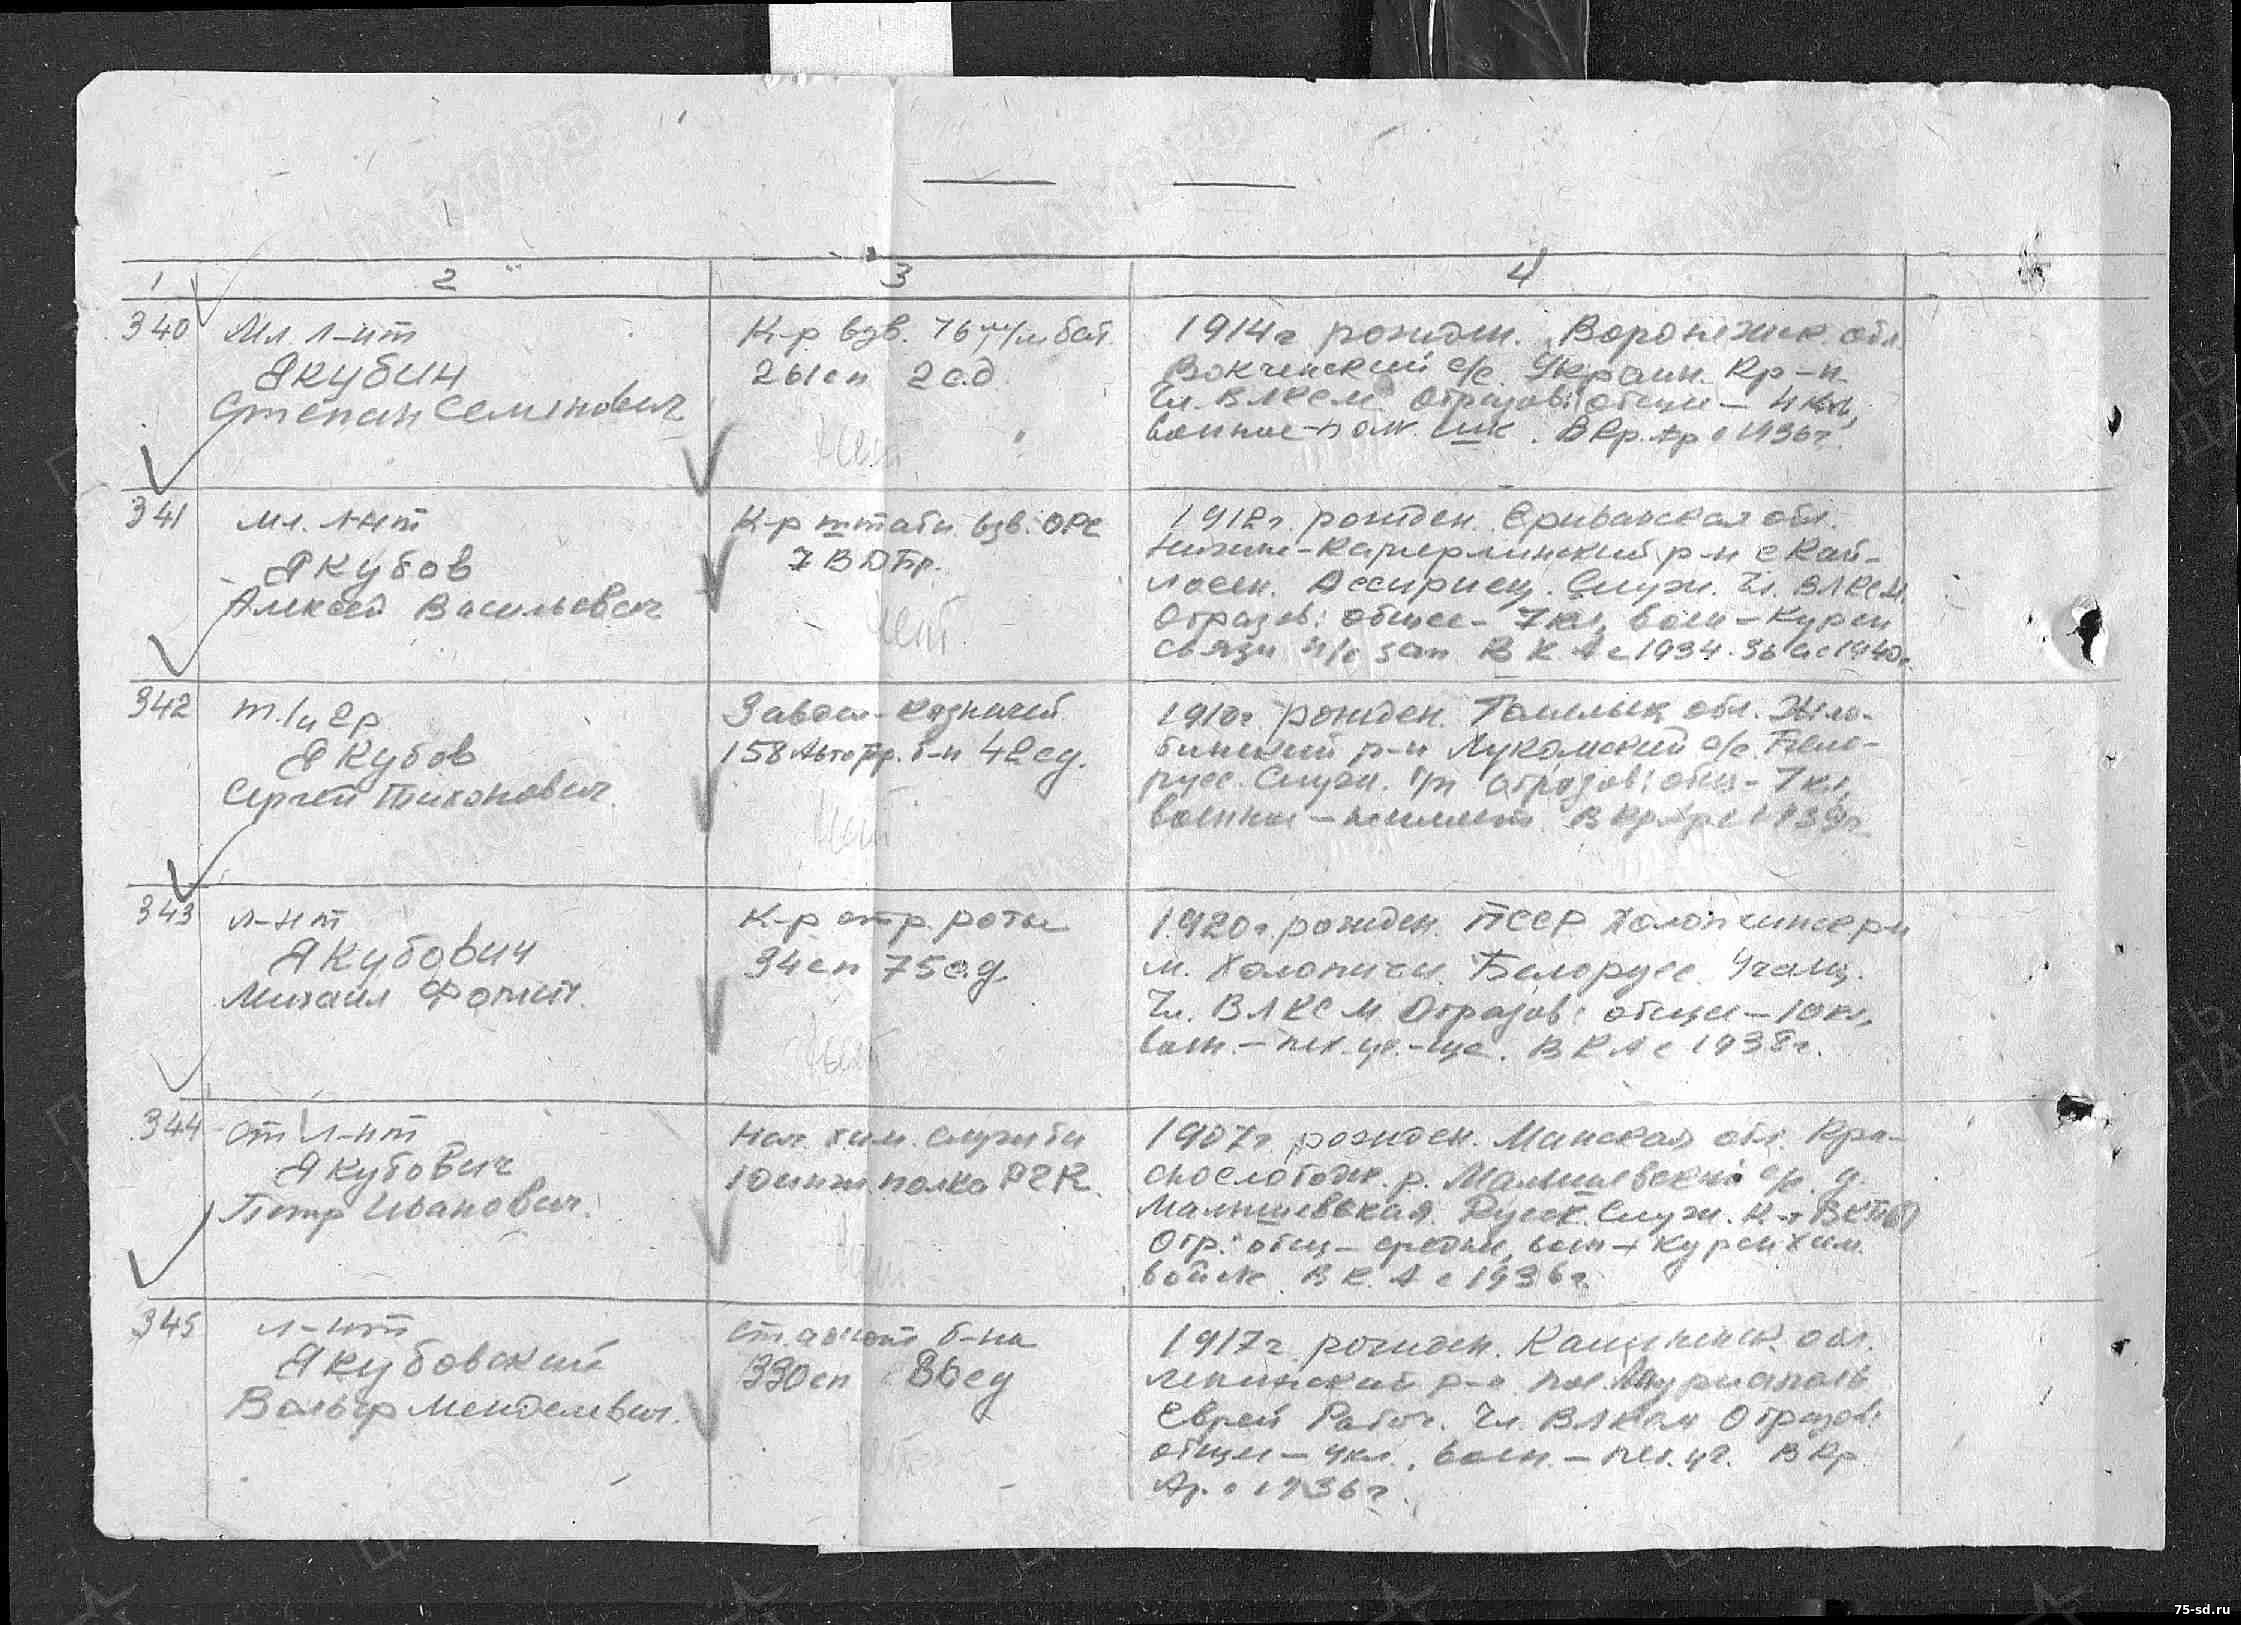 1 2 3 4
340
Мл. л-нт
Якубин
Степан Семенович
К-р взв. 76 м/м бат.
261 сп 2 с.д.
1914 г. рожден. Воронежск. обл.
с/с. Украин. Кр-н.
Чл. ВЛКСМ Образов: общее - 4 кл.,
военное - полк. шк. В Кр. Ар с 1936 г.
нет
341
мл. л-нт
Якубов
Алексей Васильевич
К-р штабн. взв. ОРС
7 ВДбр.
нет
1912 г. рожден. Ериванская обл.
р-н с. Кай-
ласен. Ассириец. Служ. Чл. ВЛКСМ.
Образов: общее - 7 кл, воен - курсы
связи н/с зап В К А с 1934-36 и с 1940 г.
342
т. и 2 р
Якубов
Сергей Тихонович.
Завдел - казначей
158 Автотр. б-н 42 сд.
нет
1910 г. рожден. Гомельск. обл. Жло-
бинский р-н Лукомский с/с. Бело-
русс. Служ. б/п Образов: общ - 7 кл,
военное - не имеет. В Кр Ар с 1932 г.
343
л-нт
Якубович
Михаил Фомич.
К-р стр. роты
34 сп 75 с.д.
нет
1920 г. рожден. БССР Холопиничский
м. Холопеничи. Белорусс. Учащ.
Чл. ВЛКСМ Образов: общее - 10 кл,
воен. - пех. уч-ще. В К А с 1938 г.
344
ст. л-нт
Якубович
Петр Иванович.
Нач. хим. службы
10 инж. полка РГК.
нет
1907 г. рожден. Минская обл. Кра-
снослободск. р. Малышевский с/с. д.
Малышевская. Русск. Служ. К-т ВКП(б)
Обр: общ - средне, воен - курсы хим.
войск В К. А с 1936 г.
345
л-нт
Якубовский
Вольф Менделевич.
ст. адъют б-на
330 сп 86 сд
нет
1917 г. рожден. Каменск. обл.
Ленинский р-н
Еврей Рабоч. Чл. ВЛКСМ Образов:
общее - 9 кл., воен. - пех. уч. В Кр.
Ар. с 1936 г.
75-sd.ru